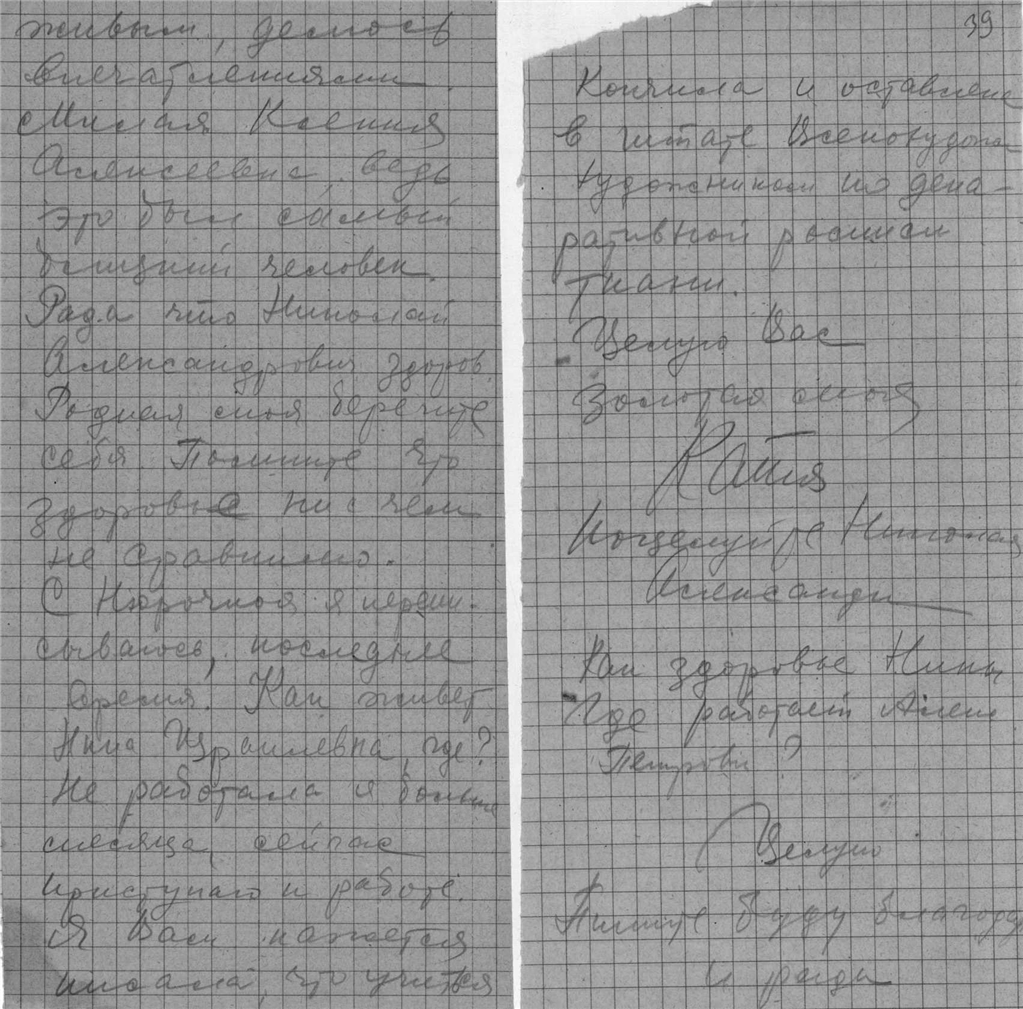 живым, делюсь
впечатлениями.
Милая Ксения
Алексеевна, ведь
это был самый
ближний человек.
Рада что Николай
Александрович здоров.
Родная моя берегите
себя. Помните что
здоровье ни с чем
не сравнимо.
С Нюрочкой я перепи-
сываюсь, последнее
время. Как живет
Нина Израилевна, где?
Не работала я больше
месяца, сейчас
приступаю к работе.
Я Вам кажется
писала, что учиться
39
Кончила и оставлена
в штате Всекохудожн
художником по деко-
ративной росписи
ткани.
Целую Вас
Золотая моя
Катя
Поцелуйте Николая
Александр
Как здоровье Нины
Где работает Алек
Петрович?
Целую
Пишите буду благод
и рада